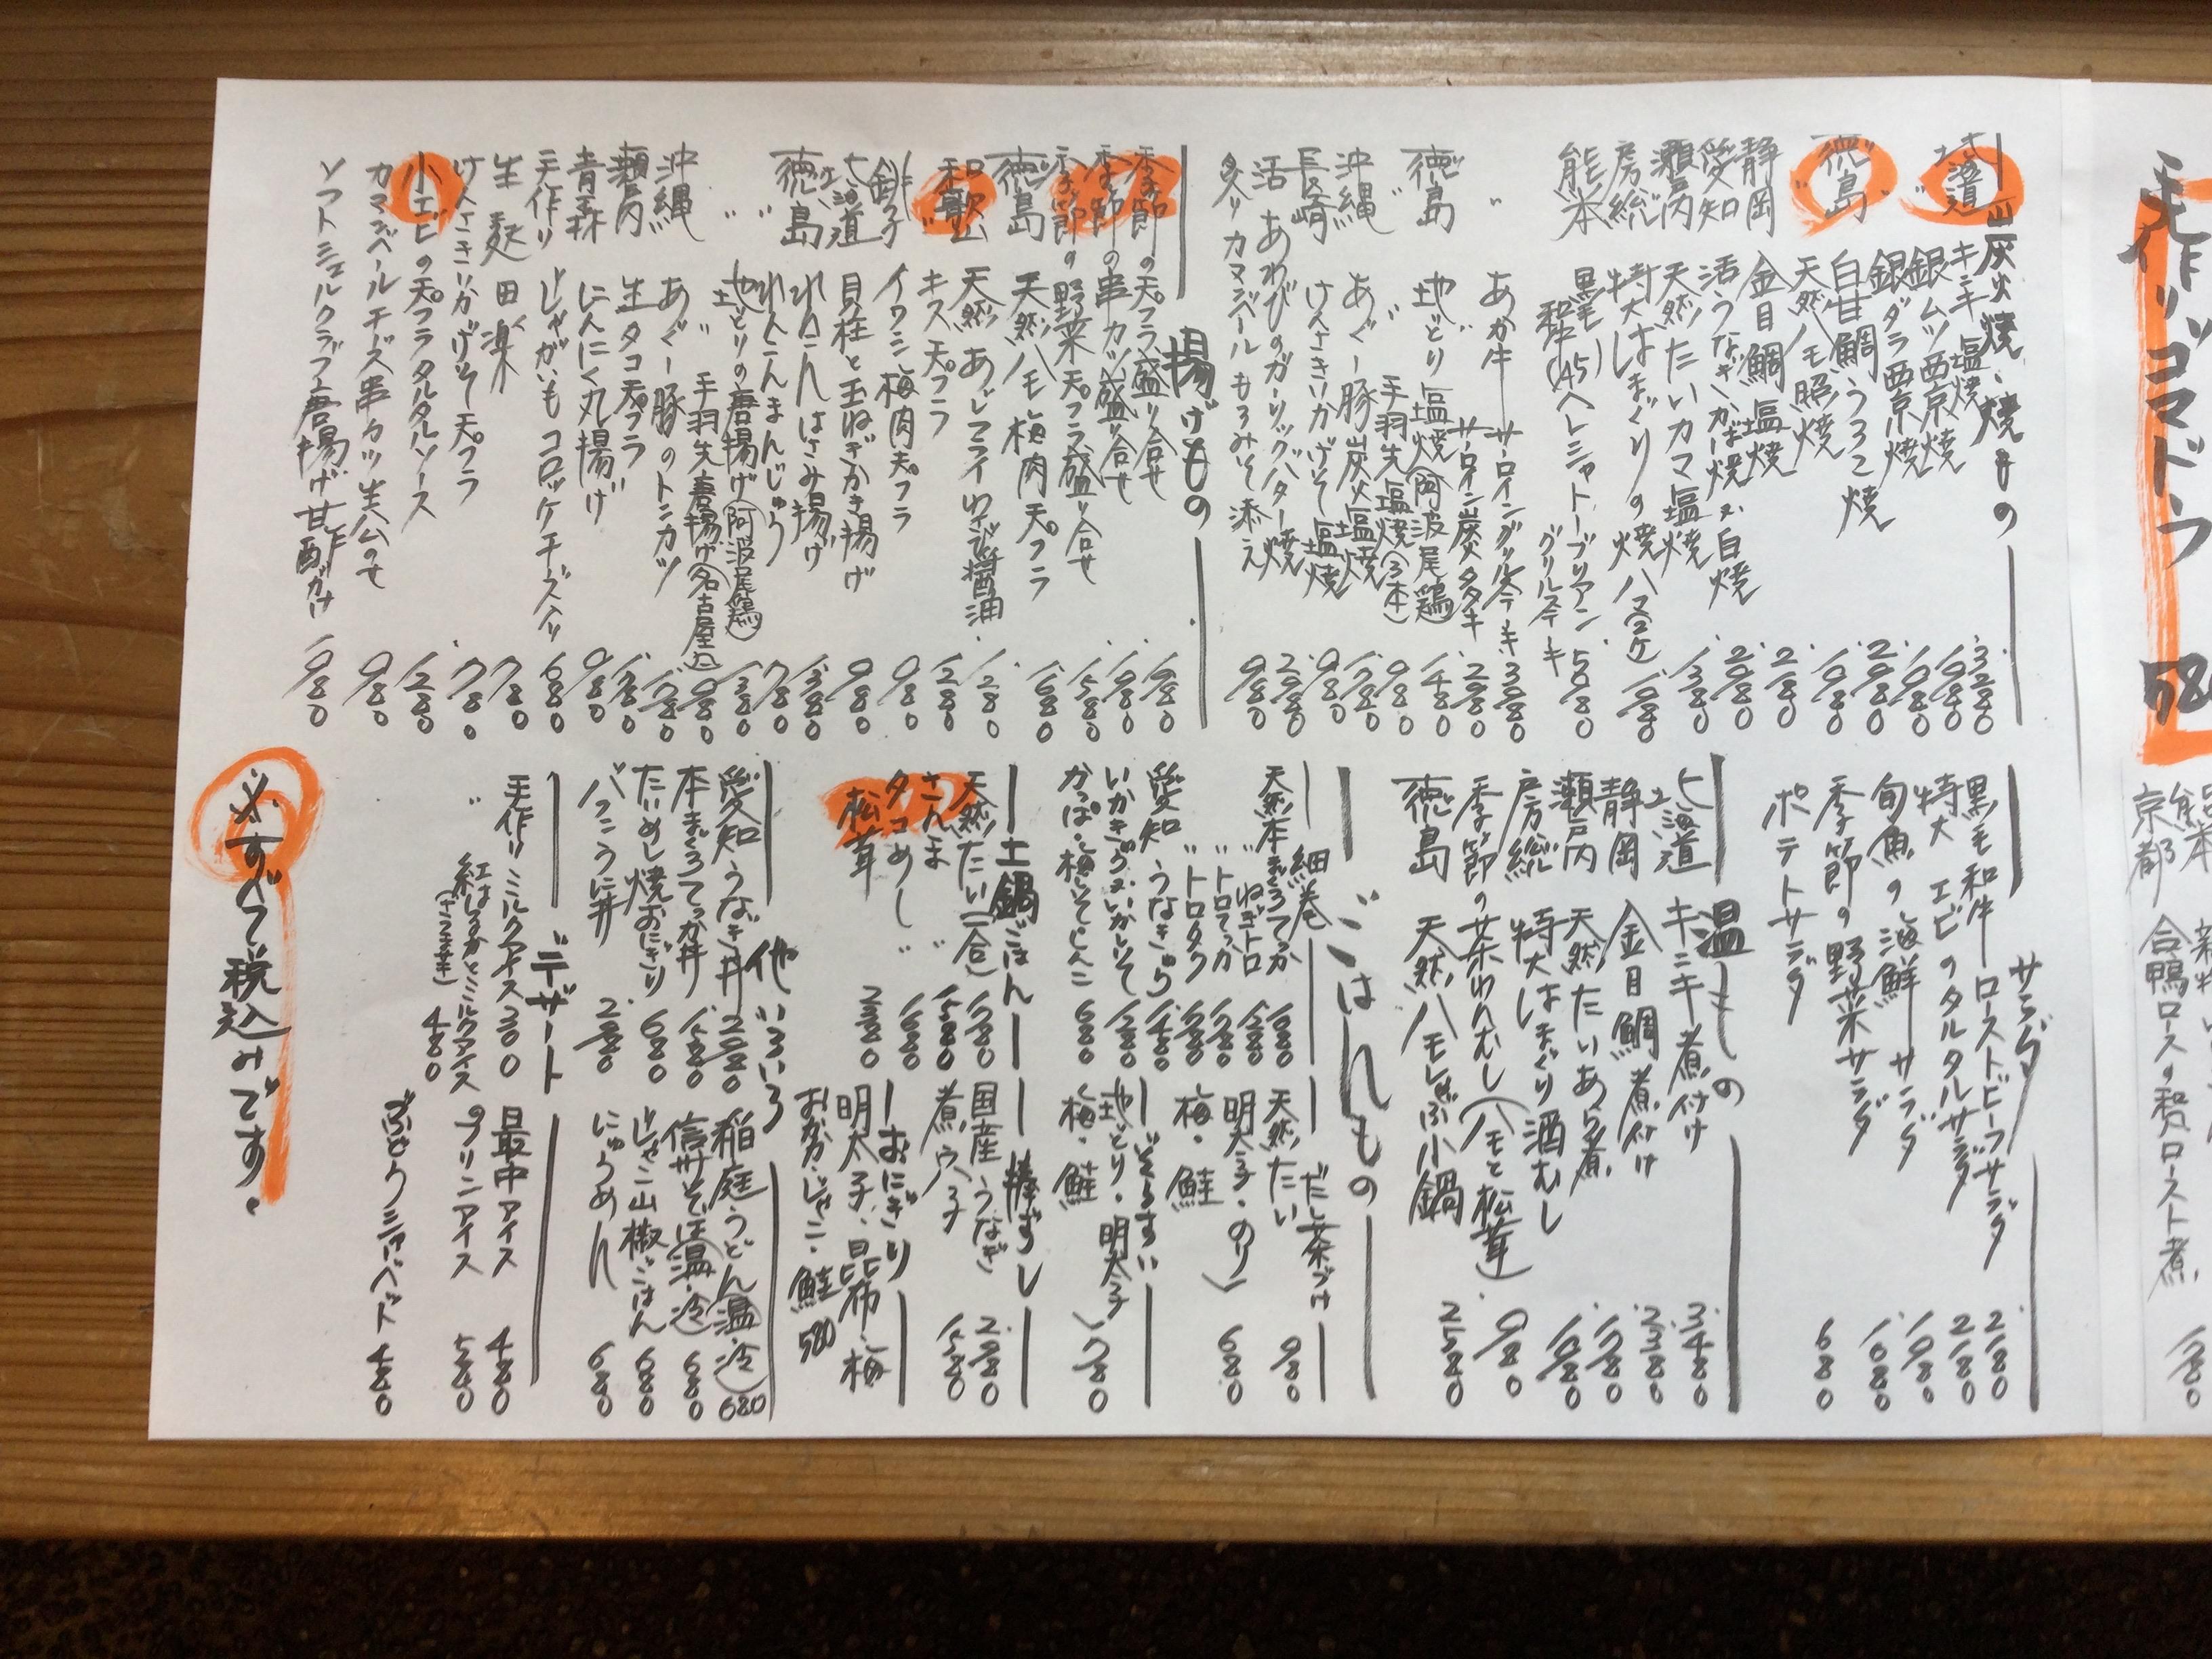 手作りゴマドウフ
580
京都 合鴨ロースの和風ロースト煮
炭火焼・焼もの
北海道 キンキ塩焼 3280
〃 銀ムツ西京焼 1980
銀ダラ西京焼 1980
徳島 白甘鯛うろこ焼 2980
〃 天然ハモ照焼 1980
静岡 金目鯛塩焼 2180
愛知 活うなぎかば焼又は白焼 2980
瀬戸内 天然たいカマ塩焼 1380
房総 特大はまぐりの焼ハマ(2ケ) 1080
熊本 黒毛和牛(A5)ヘレシャトーブリアングリルステーキ 5080
〃 あか牛 サーロイングリルステーキ 3080
サーロイン炭火タタキ 2980
徳島 地どり塩焼(阿波尾鶏) 1480
〃 〃 手羽先塩焼(3本) 980
沖縄 あぐー豚炭火塩焼 1780
長崎 けんさきいかげそ塩焼 980
活あわびのガーリックバター焼 2980
炙りカマンベールもろみそ添え 980
揚げもの
季節の天プラ盛り合せ 1980
季節の串カツ盛り合せ 1980
季節の野菜天プラ盛り合せ 1580
徳島 天然ハモ梅肉天プラ 1680
和歌山 天然あじフライわさび醤油 1280
〃 キス天プラ 1280
銚子 イワシ梅肉天プラ 980
北海道 貝柱と玉ねぎかき揚げ 980
徳島 れんこんはさみ揚げ 1380
〃 れんこんまんじゅう 780
〃 地どりの唐揚げ(阿波尾鶏) 1380
〃 手羽先唐揚げ(名古屋風) 980
沖縄 あぐー豚のトンカツ 1780
瀬戸内 生タコ天プラ 1280
青森 にんにく丸揚げ 980
手作り じゃがいもコロッケチーズ入り 680
生麩田楽 780
けんさきいかげそ天プラ 780
小エビの天プラタルタルソース 1280
カマンベールチーズ串カツ 生ハムのせ 980
ソフトシェルクラブ唐揚げ甘酢がけ 1980
サラダ
黒毛和牛ローストビーフサラダ 2180
特大エビのタルタルサラダ 2180
旬魚の海鮮サラダ 1980
季節の野菜サラダ 1080
ポテトサラダ 680
温もの
北海道 キンキ煮付け 3480
静岡 金目鯛煮付け 2380
瀬戸内 天然たいあら煮 1780
房総 特大はまぐり酒むし 1080
季節の茶わんむし(ハモと松茸) 980
徳島 天然ハモしゃぶ小鍋 2580
ごはんもの
細巻
天然本まぐろてっか 1680
〃 ねぎトロ 1280
〃 トロてっか 2280
〃 トロタク 1580
愛知 うなきゅう 1480
いかきゅう・いかしそ 1280
かっぱ・梅しそ・しんこ 680
だし茶づけ
天然たい 980
明太子・のり
梅・鮭 680
ぞうすい
地どり・明太子
梅・鮭 780
土鍋ごはん
天然たい(一合) 1580
さんま 〃 1580
タコめし 〃 1680
松茸 2980
棒ずし
国産うなぎ 2980
煮穴子 1580
おにぎり
明太子・昆布・梅
おかか・じゃこ・鮭 580
他いろいろ
愛知うなぎ丼 2980
本まぐろてっか丼 1580
たいめし焼おにぎり 680
バフンうに丼 2980
稲庭うどん(温・冷) 680
信州そば(温・冷) 680
じゃこ山椒ごはん 680
にゅうめん 680
デザート
手作りミルクアイス 380
〃 紅はるかとミルクアイス(さつま芋) 480
最中アイス 480
プリンアイス 580
ぶどうシャーベット 480
※すべて税込みです。